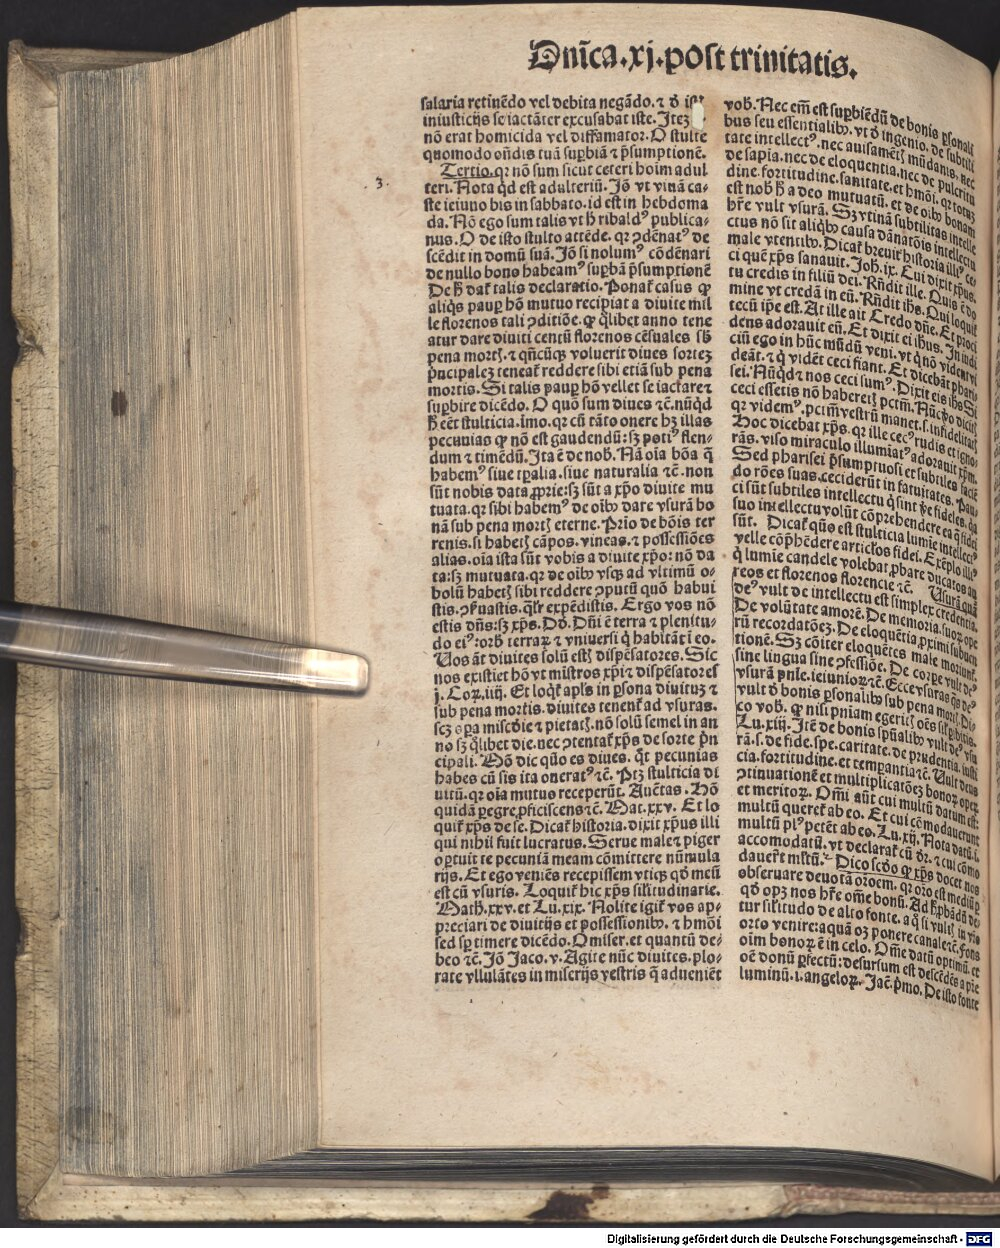 Dnīca.xj.post trinitatis.
salaria retinēdo vel debita negādo.⁊ ꝺ̄
iniusticijs se iactāter excusabat iste. Itez
nō erat homicida vel diffamator. O stulte
quomodo on̄dis tuā suꝑbiā ⁊ p̄sumptionē.
3. Tertio.qꝛ nō sum sicut ceteri hoim adul
teri. Nota qd est adulteriū. Iō vt vinā ca-
ste ieiuno bis in sabbato.id est in hebdoma
da. Nō ego sum talis vt h̄ ribaldꝰ publica-
nus. O de isto stulto attēde. qꝛ ꝯdēnatꝰ de
scēdit in domū suā. Iō si nolumꝰ cōdēnari
de nullo bono habeamꝰ suꝑbā p̄sumptionē
De h̄ dat̄ talis declaratio. Ponat̄ casus ꝙ
aliq̄s pauꝑ hō mutuo recipiat a diuite mil
le florenos tali ꝯditiōe. ꝙ q̄libet anno tene
atur dare diuiti centū florenos cēsuales sb̄
pena mort̄. ⁊ qn̄cūqꝫ voluerit diues sortez
p̄ncipalez teneat̄ reddere sibi etiā sub pena
mortis. Si talis pauꝑ hō vellet se iactare ⁊
suꝑbire dicēdo. O quō sum diues ⁊c̄. nūqd
h̄ eēt stulticia. imo.qꝛ cū tāto onere hꝫ illas
pecunias ꝙ nō est gaudendū: sꝫ potiꝰ flen-
dum ⁊ timēdū. Ita ē de nob̄. Nā oīa bōa q̄
habemꝰ siue tꝑalia.siue naturalia ⁊c̄.non
sūt nobis data ꝓprie:sꝫ sūt a xp̄o diuite mu
tuata.qꝛ sibi habemꝰ de oībꝰ dare vsurā bo
nā sub pena mort̄ eterne. Prīo de bōis ter
renis.si habet̄ cāpos. vineas.⁊ possessiōes
alias.oīa ista sūt vobis a diuite xp̄o: nō da
ta:sꝫ mutuata.qꝛ de oībꝰ vsqꝫ ad vltimū o-
bolū habet̄ sibi reddere ꝯputū quō habui
stis. ꝯꝑuastis.qlr̄ expēdistis. Ergo vos nō
estis dn̄s:sꝫ xp̄s. Dō. Dn̄i ē terra ⁊ plenitu-
do eiꝰ:orb̄ terraꝝ ⁊ vniuersi q̄ habitāt ī eo.
Uos āt diuites solū est̄ dispēsatores. Sic
nos existiet hō vt mistros xp̄i ⁊ dispēsatores
j. Coꝝ.iiij. Et loqt̄ apl̄s in ꝑsona diuituꝫ ⁊
sub pena mortis.diuites tenent̄ ad vsuras.
scꝫ oꝑa miscdie ⁊ pietat̄. nō solū semel in an
no sꝫ q̄libet die.nec ꝯtentat̄ xp̄s de sorte p̄n
cipali. Mō dic quō es diues. qt̄ pecunias
habes cū sis ita oneratꝰ ⁊c̄. Ptꝫ stulticia di
uitū.qꝛ oīa mutuo receperūt. Auētas. Hō
quidā ꝑegre ꝓficiscens ⁊c̄. Mat.xxv. Et lo
quit̄ xp̄s de se. Dicat̄ historia.dixit xp̄us illi
qui nihil fuit lucratus. Serue male ⁊ piger
oꝑtuit te pecuniā meam cōmittere nūmula
rijs. Et ego veniēs recepissem vtiqꝫ qd̄ meū
est cū vsuris. Loquit̄ hic xp̄s sil̄itudinarie.
Math̄.xxv.et Lu.xix. Nolite igit̄ vos ap-
preciari de diuitijs et possessionibꝰ. ⁊ hmōi
sed sꝑ timere dicēdo. O miser.et quantū de-
beo ⁊c̄. Iō Iaco.v. Agite nūc diuites.plo-
rate vllulātes in miserijs vestris q̄ adueniēt
vob̄. Nec em̄ est suꝑbiēdū de bonis ꝑsonali
bus seu essentialibꝰ. vt ꝺ̄ ingenio. de subtili
tate intellectꝰ. nec auisamēt̄ mūdanis. nec
de sapia. nec de eloquentia.nec de pulcritu
dine. fortitudine. sanitate.et hmōi. qꝛ totuꝫ
est nob̄ h̄ a deo mutuatū. et de oībꝰ bonam
hr̄e vult vsurā. Sꝫ vtinā subtilitas intelle
ctus nō sit aliqbꝰ causa dānatōis intellectu
male vtentibꝰ. Dicat̄ breuit̄ historia illiꝰ ce-
ci quē xp̄s sanauit. Ioh̄.ix. Cui dixit xp̄us.
tu credis in filiū dei. Rn̄dit ille. Quis ē do
mine vt credā in eū. Rn̄dit ih̄s. Qui loquit̄
tecū ip̄e est. At ille ait Credo dn̄e. Et proci
dens adorauit eū. Et dixit ei ih̄us. In iudi
ciū ego in hūc mūdū veni. vt q̄ nō vident vi
deāt. ⁊ q̄ vidēt ceci fiant. Et dicebāt phari-
sei. Nūqd ⁊ nos ceci sumꝰ. Dixit eis ih̄s Si
ceci essetis nō haberet̄ pctm̄. Nūc ꝟo dicit̄
qꝛ videmꝰ. pctm̄ vestrū manet.s.infidelitat̄
Hoc dicebat xp̄s. qꝛ ille cecꝰ rudis et igno-
rās. viso miraculo illumiatꝰ adorauit xp̄m.
Sed pharisei p̄sumptuosi et subtiles
do rōes suas.ceciderūt in fatuitates. Pau-
ci sūt subtiles intellectu q̄ sint ꝟe fideles. qꝛ
suo intellectu volūt cōprehendere ea q̄ fidei
sūt. Dicat̄ quō est stulticia lumīe intellectꝰ
velle cōp̄hēdere articlos fidei. Exēplo illiꝰ
q̄ lumīe candele volebat ꝓbare ducatos au
reos et florenos florencie ⁊c̄. Usurā quā
deꝰ vult de intellectu est simplex credentia.
De volūtate amorē. De memoria.suoꝝ oꝑe
rū recordatōeꝫ. De eloquētia ꝓximi
tionē. Sꝫ cōiter eloquētes male moriunt̄.
sine lingua sine ꝯfessiōe. De corꝑe vult deꝰ
vsurā pn̄ie.ieiunioꝝ ⁊c̄. Ecce vsuras qs deꝰ
vult ꝺ̄ bonis ꝑsonalibꝰ sub pena mort̄. Di-
co vob̄. ꝙ nisi pn̄iam egerit̄ oēs sil̄ ꝑibitis.
Lu.xiij. Itē de bonis spūalibꝰ vult deꝰ vsu
rā.s.de fide.spe.caritate.de prudentia.iusti
cia.fortitudine.et temꝑantia ⁊c̄. Uult deus
ꝯtinuationē et multiplicatōeꝫ bonoꝝ opeꝝ
et meritoꝝ. Omī aūt cui multū datum est:
multū queret̄ ab eo. Et cui cōmodauerunt
multū plꝰ petēt ab eo. Lu.xij. Nota datū.i.
accomodatū.vt declarat̄ cū dr̄. ⁊ cui cōmo
dauer̄t mltū. Dico scd̄o ꝙ xp̄s docet nos
obseruare deuotā oroem. qꝛ oro est mediū ꝑ
qd̄ opꝫ nos hr̄e om̄e bonū. Ad
tur sil̄itudo de alto fonte. a q̄ si vult̄ in vr̄o
orto venire:aquā oꝫ ponere canale ⁊c̄. Fons
oīm bonoꝝ ē in celo. Om̄e datū optimū. et
oē donū ꝑfectū:desursum est descēdēs a pr̄e
luminū.i.angeloꝝ. Iac̄.p̄mo. De isto fonte
Digitalisierung gefördert durch die Deutsche Forschungsgemeinschaft - DFG